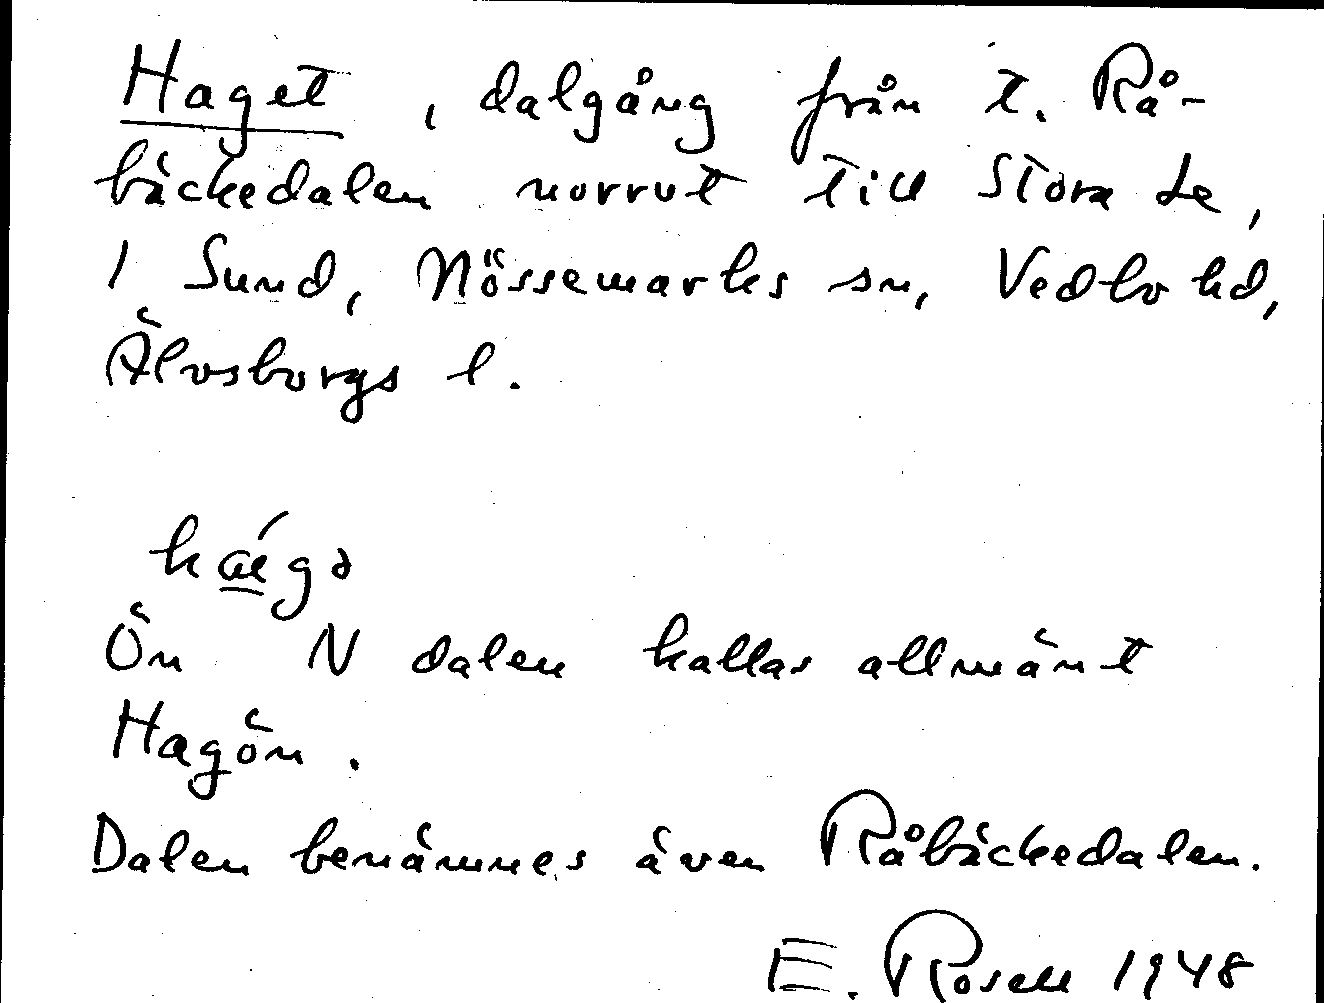 Haget, dalgång från t. Rå-
bäckedalen norrut till Stora Le,
I Sund, Nössemarks sn, Vedbo hd,
Älvsborgs l.
Ön N dalen kallas allmänt
Hagön.
Dalen benämnes även Råbäckedalen.
E. Rosell 1948